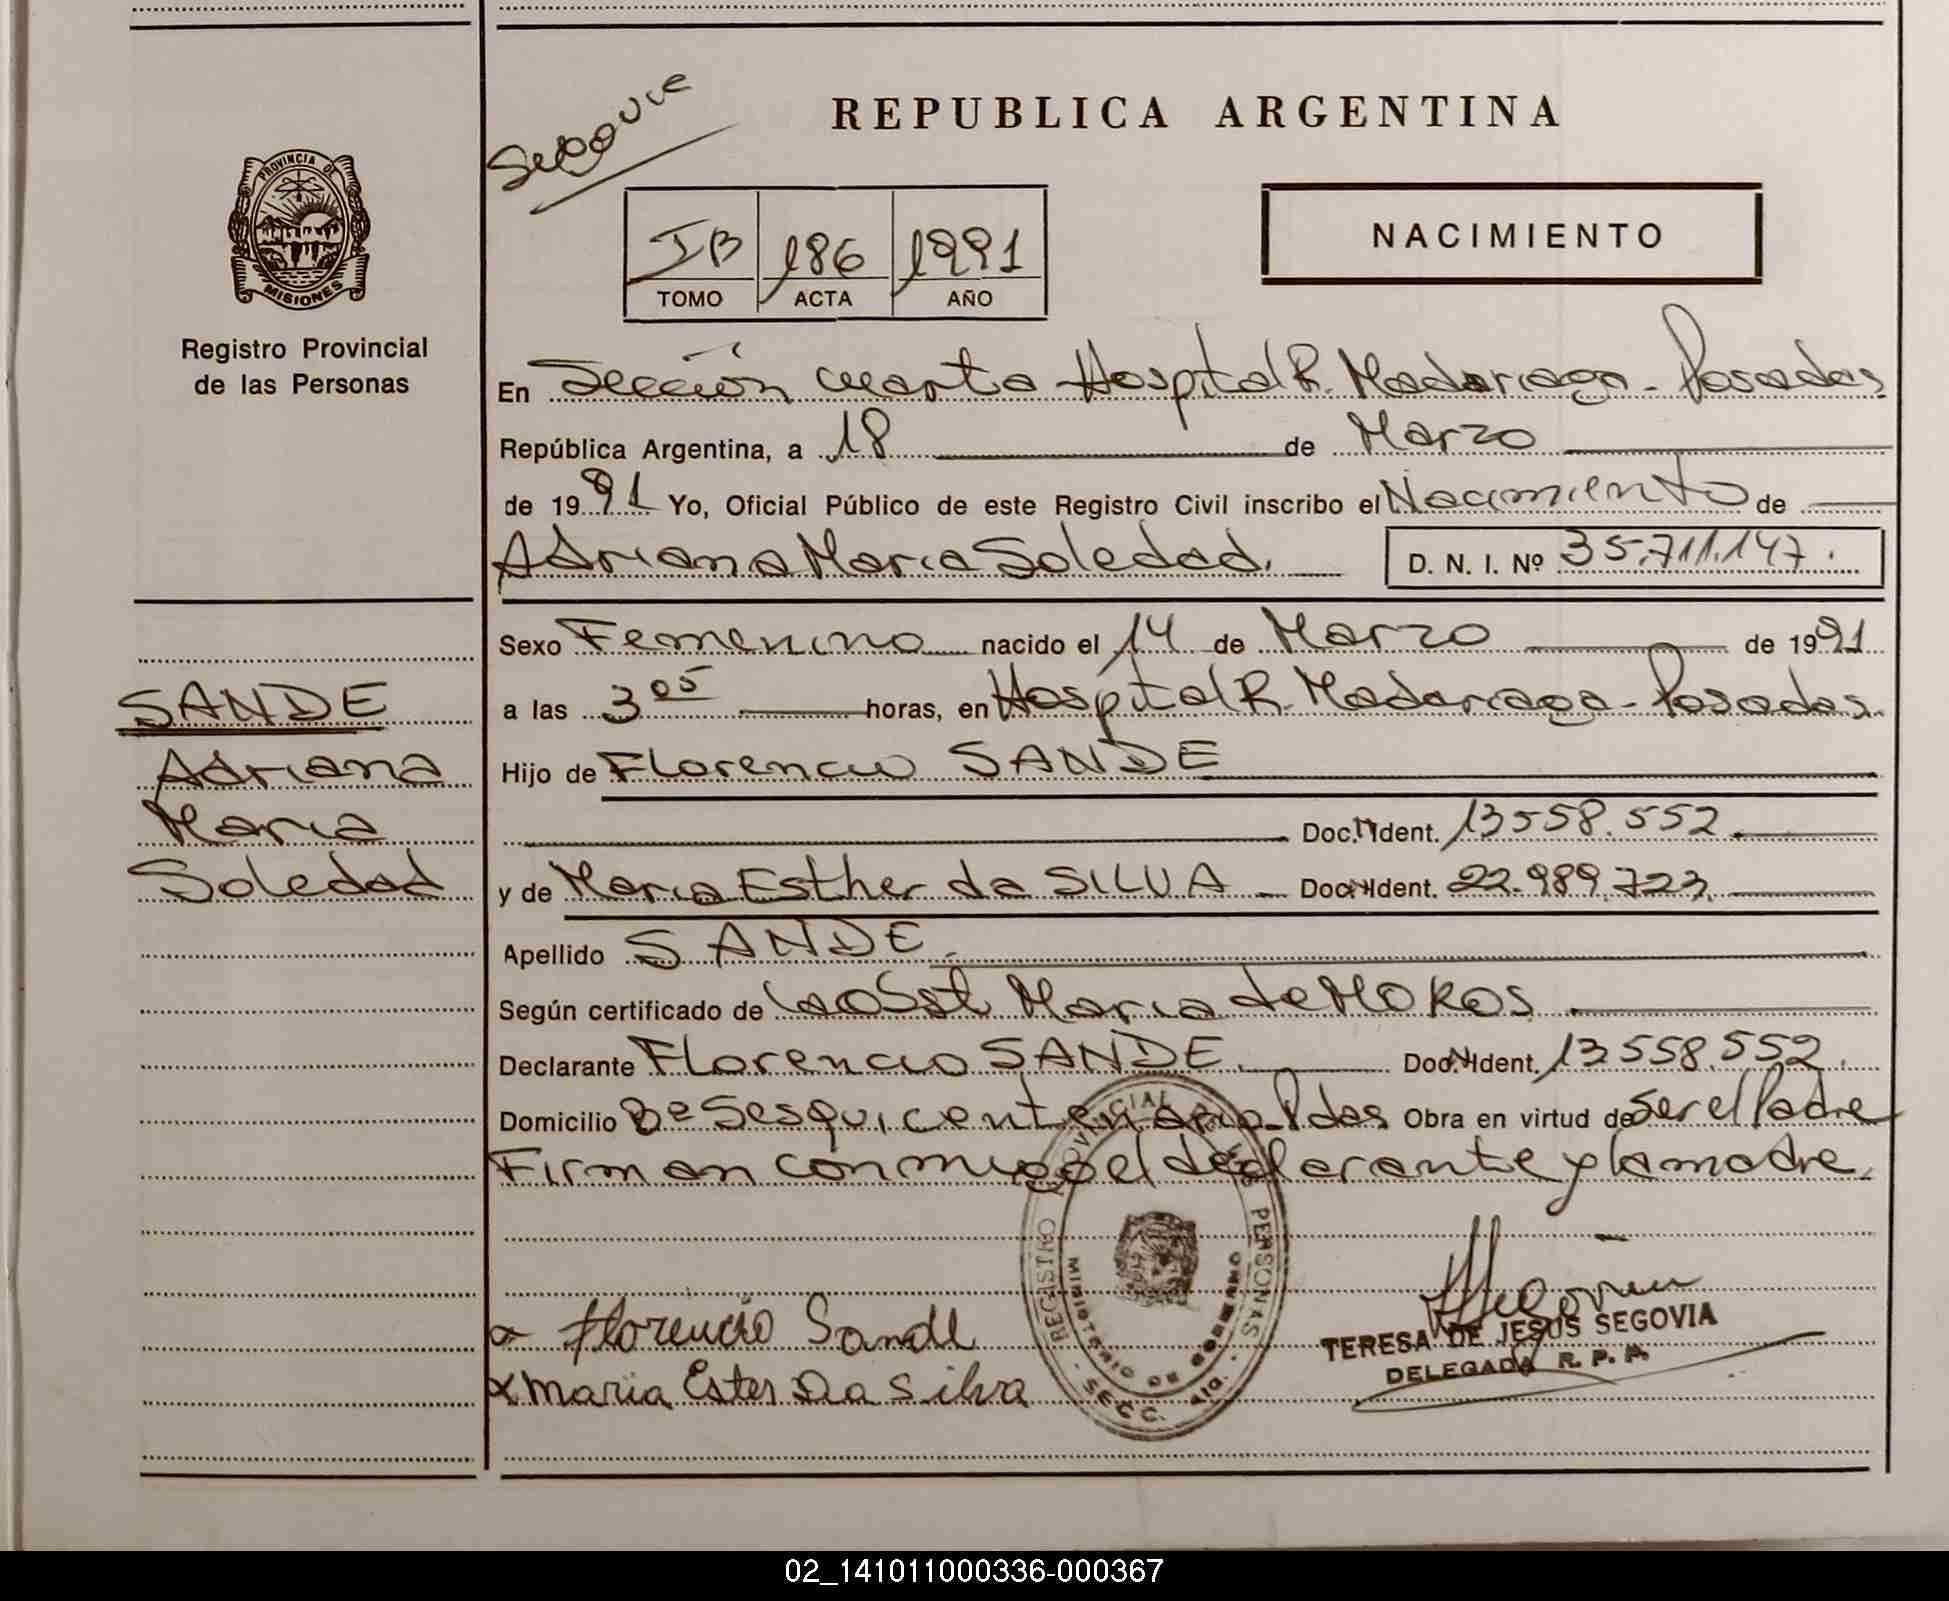 Subque
REPUBLICA ARGENTINA
PROVINCIA DE
MISIONES
Registro Provincial
de las Personas
NACIMIENTO
IB 186 1991
TOMO ACTA AÑO
En Sección cuarta Hospital R. Madariaga - Posadas
República Argentina, a 18 de Marzo
de 1991 Yo, Oficial Público de este Registro Civil inscribo el Nacimiento de
Adriana Maria Soledad. D. N. I. Nº 35.711.147.
Sexo Femenino nacido el 14 de Marzo de 1991
a las 3 05 horas, en Hospital R. Madariaga - Posadas.
Hijo de Florencio SANDE
Doc. Ident. 13558.552
y de Maria Esther da SILVA Doc. Ident. 22.989.723
Apellido SANDE
Según certificado de la Obst Maria de MOROS
Declarante Florencio SANDE Doc. Ident. 13.558.552.
Domicilio Bº Sesquicentenario - Pdas Obra en virtud de ser el Padre
Firman conmigo el declarante y la madre.
SANDE
Adriana
Maria
Soledad
REGISTRO PROVINCIAL DE LAS PERSONAS
MINISTERIO DE GOBIERNO
SECC. 4ta.
Florencio Sande
Maria Ester Da Silva
TERESA DE JESUS SEGOVIA
DELEGADA R. P. P.
02_141011000336-000367